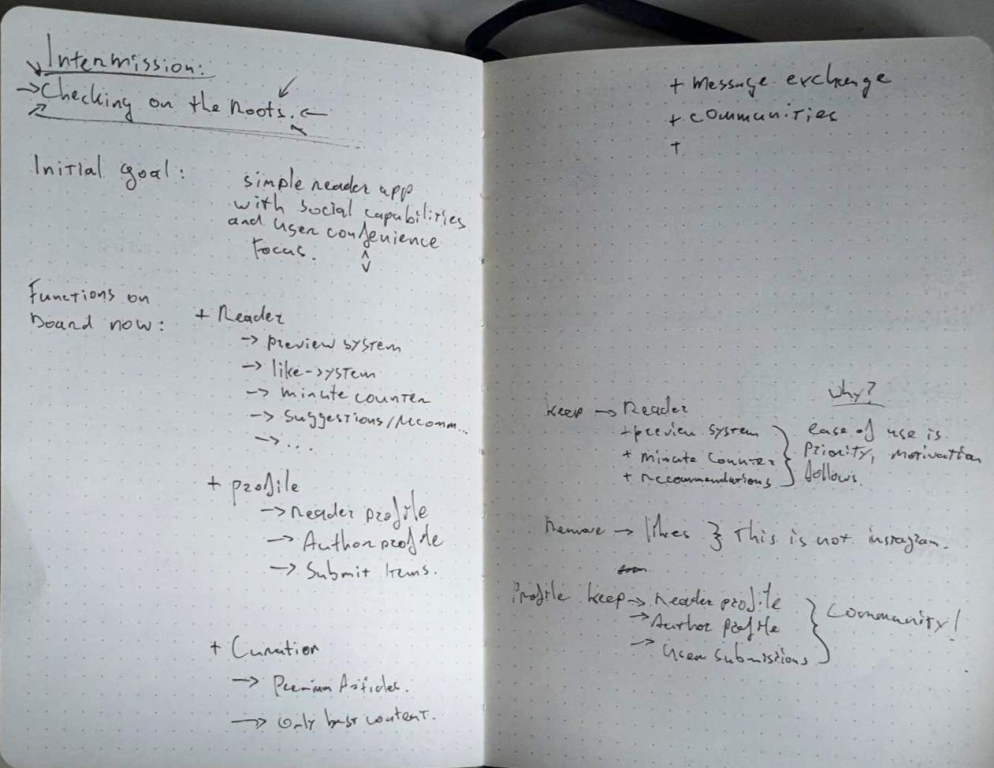 Intermission:
→Checking on the roots.←
Initial goal:
simple reader app
with social capabilities
and user confenience
focus.
Functions on
board now:
+ Reader
→ preview system
→ like-system
→ minute counter
→ suggestions/recomm...
→...
+ profile
→ reader profile
→ Author profile
→ Submit items.
+ Curation
→ Premium Articles.
→ only best content.
+ message exchange
+ communities
+
Why?
keep → Reader
+ preview system
+ minute counter
+ recommendations
} ease of use is
priority, motivation
follows.
Remove → likes } This is not instagram.
Profile keep → Reader profile
→ Author profile
→ user submissions
} Community!